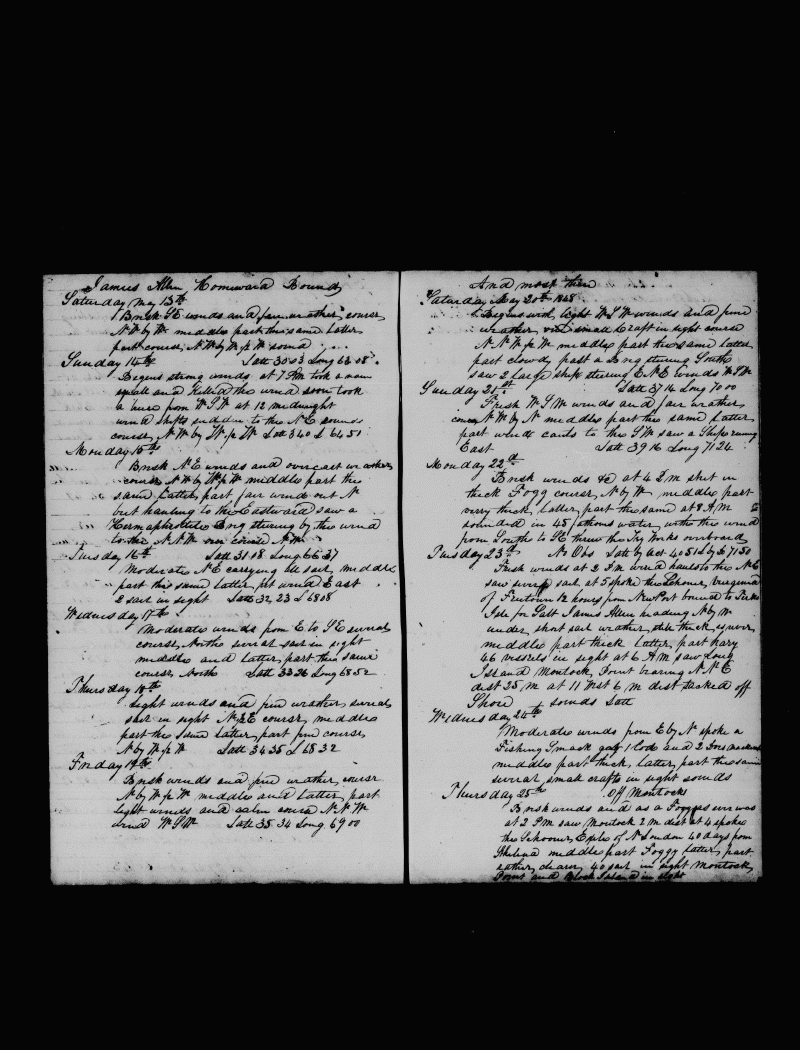 James Allen Homeward Bound
Saturday May 13th
Brisk SE winds and fair weather course
NW by W middle part the same latter
part course NW by W 1/2 W sound
Sunday 14th Latt 30 03 Long 63 08
Begins strong winds at 7 PM took a
squall and the wind soon took
a from WSW at 12 midnight
wind shifts sudden to the NE sounds
course NW by W 1/2 W Latt 30 40 L 64 51
Monday 15th
Brisk NE winds and overcast weather
course NW by W 1/2 W middle part the
same latter part fair wind out N
but hauling to the Eastward saw a
Hermaphrodite Brig steering by the wind
to the NNW our course NW
Tuesday 16th Latt 31 18 Long 66 37
Moderate NE carrying all sail middle
part the same latter pt wind East
2 sail in sight Latt 32 23 L 68 08
Wednesday 17th
Moderate winds from E to SE several
course North several sail in sight
middle and latter part the same
course North Latt 33 26 Long 68 52
Thursday 18th
Light winds and fine weather several
sail in sight course middle
part the same latter part fine course
N by W 1/2 W Latt 34 35 L 68 32
Friday 19th
Brisk winds and fine weather course
N by W 1/2 W middle and latter part
light winds and calm course NNW
wind WSW Latt 35 34 Long 69 00
And most there
Saturday May 20th 1848
Begins with light WSW winds and fine
weather small Craft in sight course
NNW 1/2 W middle part the same latter
part cloudy past a Brig steering South
saw 2 large ships steering ENE winds WSW
Sunday 21st Latt 37 14 Long 70 00
Fresh WSW winds and fair weather
course NW by N middle part the same latter
part winds cants to the SW saw a Ship running
East Latt 39 16 Long 71 24
Monday 22d
Brisk winds &c at 4 PM shut in
thick Fogg course N by W middle part
very thick latter part the same at 8 AM
sounded in 45 fathoms water with the wind
from South to SE threw the Try Works overboard
Tuesday 23d No Obs Latt by act 40 51 L by D 71 50
Fresh winds at 2 PM wind hauls to the NE
saw several sail at 5 spoke the Schooner
of Freetown 12 hours from New Port bound to
Isle for Salt James Allen heading N by W
under short sail weather still thick
middle part thick latter part hazy
46 vessels in sight at 6 AM saw Long
Island Montock Point bearing NNE
dist 35 m at 11 West 6 m dist tacked off
Shore sounds Latt
Wednesday 24th
Moderate winds from E by N spoke a
Fishing Smack got 1 Cod and 2 Dos
middle part thick latter part the same
several small crafts in sight sounds
Thursday 25th Off Montock
Brisk winds and as a Fogg as ever was
at 2 PM saw Montock 2 m dist at 4 spoke
the Schooner Exile of N London 40 days from
St Helena middle part Foggy latter part
rather clearer 40 sail in sight Montock
Point and Block Island in sight